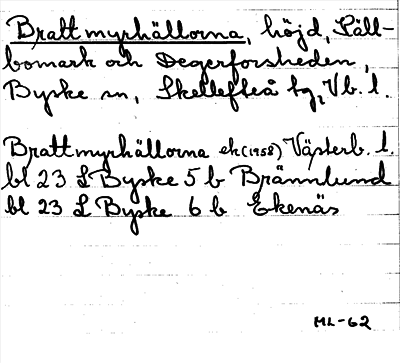 Brattmyrhällorna, höjd, Fäll-
bomark och Degerforsheden,
Byske sn, Skellefteå tg, Vb. l.
Brattmyrhällorna ek (1958) Västerb. l.
bl 23 L Byske 5 b Brännlund
bl 23 L Byske 6 b Ekenäs
ML-62